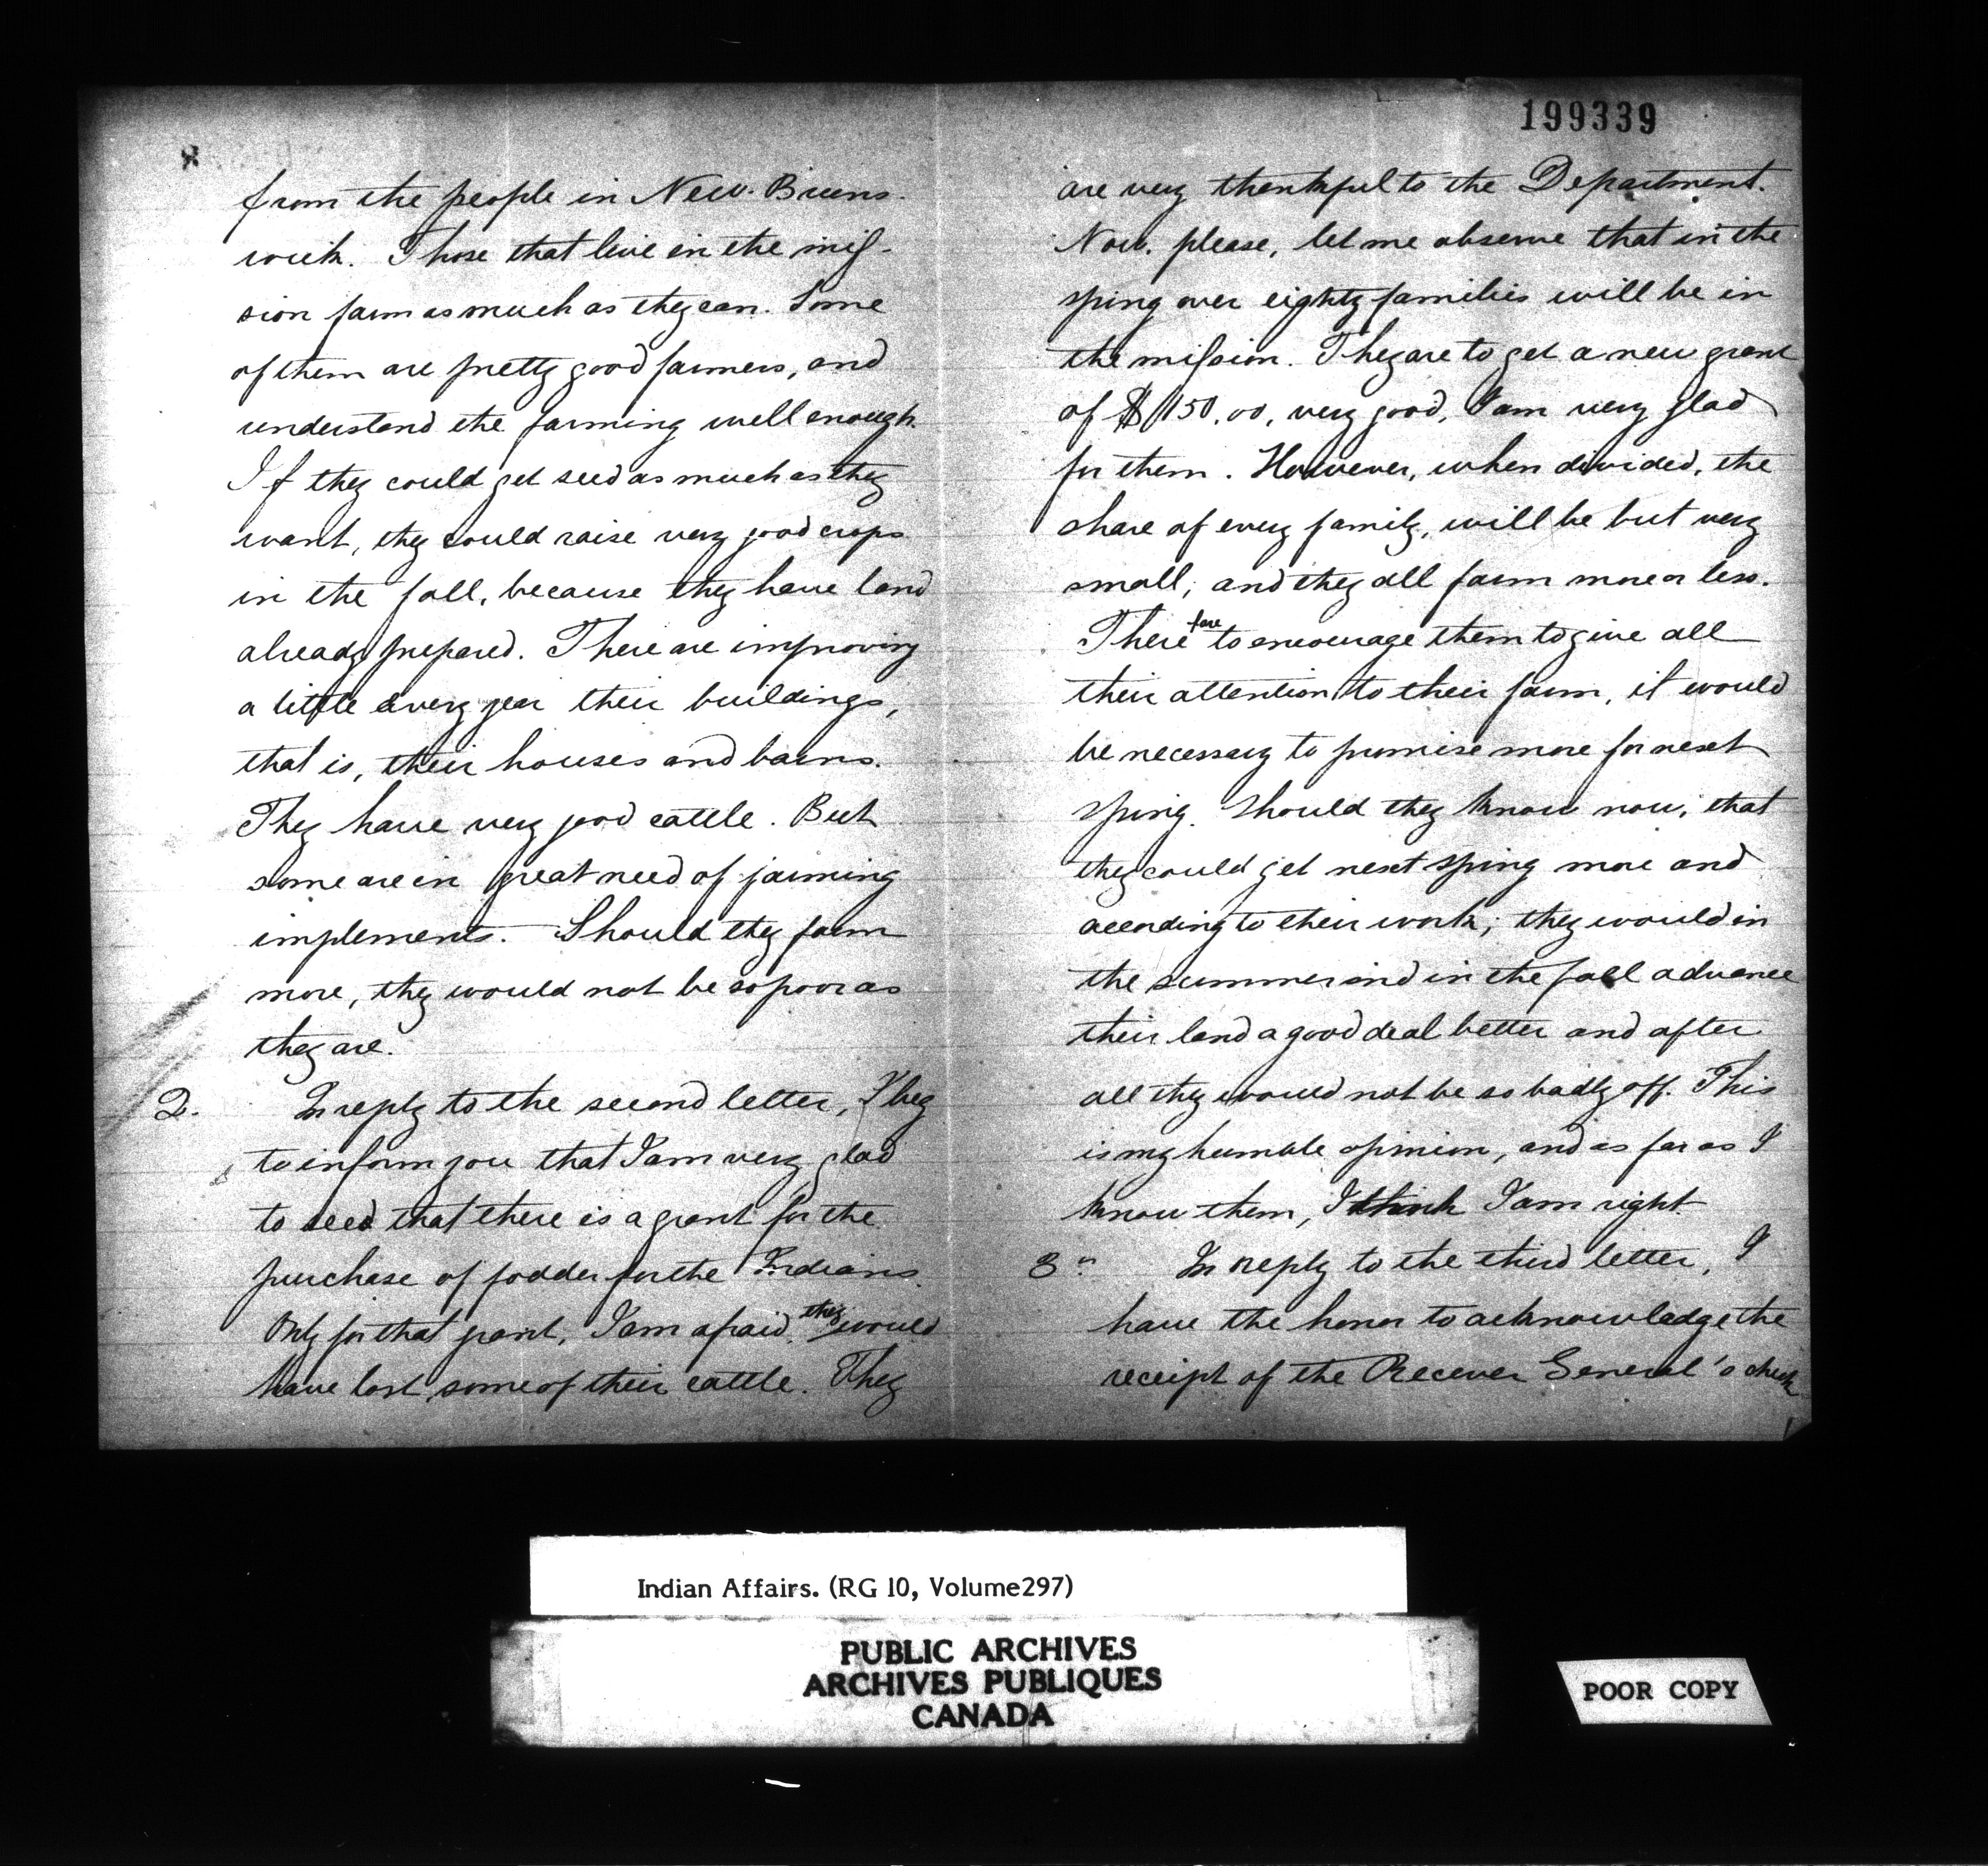 199339
from the people in New-Bruns-
wick. Those that live in the mis-
sion farm as much as they can. Some
of them are pretty good farmers, and
understand the farming well enough.
If they could get seed as much as they
want, they could raise very good crops
in the fall, because they have land
already prepared. There are improving
a little every year their buildings,
that is, their houses and barns.
They have very good cattle. But
some are in great need of farming
implements. Should they farm
more, they would not be so poor as
they are.
2. In reply to the second letter, I beg
to inform you that I am very glad
to seed that there is a grant for the
purchase of fodder for the Indians.
Only for that grant, I am afraid, they would
have lost some of their cattle. They
are very thenkful to the Department.
Now, please, let me observe that in the
sping over eighty families will be in
the mission. They are to get a new grant
of $150.00, very good, I am very glad
for them. However, when divided, the
share of every family, will be but very
small; and they all farm more or less.
Therefore to encourage them to give all
their attention to their farm, it would
be necessary to promise more for next
sping. Should they know now, that
they could get next sping more and
according to their work; they would in
the summer and in the fall advance
their land a good deal better and after
all they would not be so badly off. This
is my humble opinion, and as far as I
know them, I think I am right.
3° In reply to the third letter, I
have the honor to acknowledge the
receipt of the Recever General's check
Indian Affairs. (RG 10, Volume297)
PUBLIC ARCHIVES
ARCHIVES PUBLIQUES
CANADA
POOR COPY